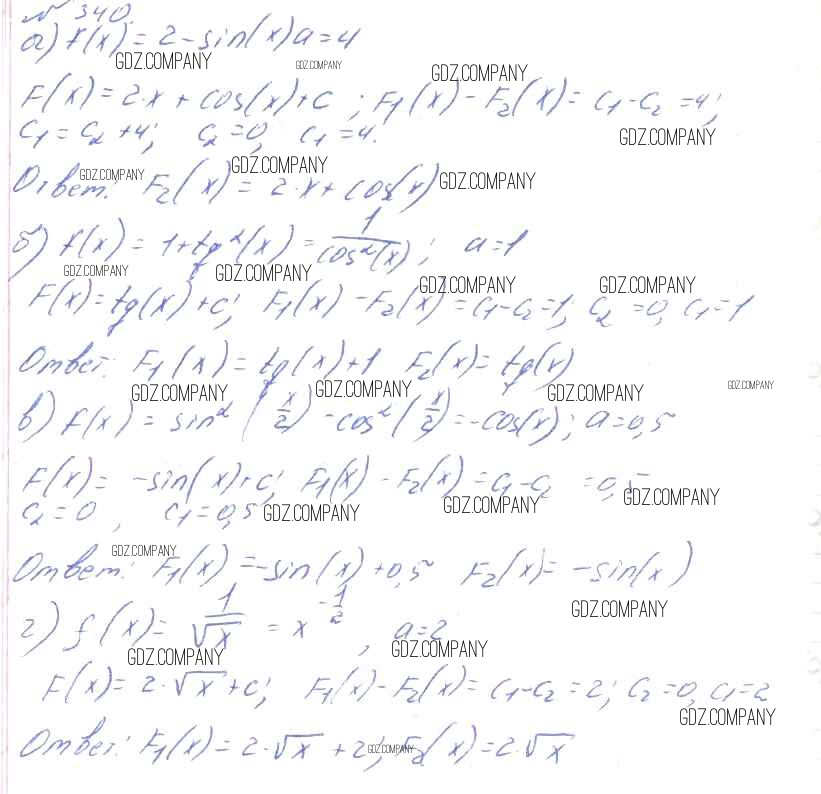 № 340.
а) f(x) = 2 - sin(x) a = 4
GDZ.COMPANY GDZ.COMPANY GDZ.COMPANY
F(x) = 2·x + cos(x) + c ; F₁(x) - F₂(x) = c₁ - c₂ = 4;
c₁ = c₂ + 4; c₂ = 0, c₁ = 4. GDZ.COMPANY
GDZ.COMPANY GDZ.COMPANY GDZ.COMPANY
Ответ: F₂(x) = 2·x + cos(x)
б) f(x) = 1 + tg²(x) = 1/cos²(x); a = 1
GDZ.COMPANY GDZ.COMPANY GDZ.COMPANY GDZ.COMPANY
F(x) = tg(x) + c; F₁(x) - F₂(x) = c₁ - c₂ = 1; c₂ = 0, c₁ = 1
Ответ: F₁(x) = tg(x) + 1 F₂(x) = tg(x)
GDZ.COMPANY GDZ.COMPANY GDZ.COMPANY GDZ.COMPANY
в) f(x) = sin²(x/2) - cos²(x/2) = -cos(x); a = 0,5
F(x) = -sin(x) + c; F₁(x) - F₂(x) = c₁ - c₂ = 0,5
c₂ = 0 , c₁ = 0,5 GDZ.COMPANY GDZ.COMPANY GDZ.COMPANY
GDZ.COMPANY
Ответ: F₁(x) = -sin(x) + 0,5 F₂(x) = -sin(x)
GDZ.COMPANY
г) f(x) = 1/√x = x^(-1/2) , a = 2
GDZ.COMPANY GDZ.COMPANY
F(x) = 2·√x + c; F₁(x) - F₂(x) = c₁ - c₂ = 2; c₂ = 0, c₁ = 2
GDZ.COMPANY
Ответ: F₁(x) = 2·√x + 2; F₂(x) = 2·√x
GDZ.COMPANY